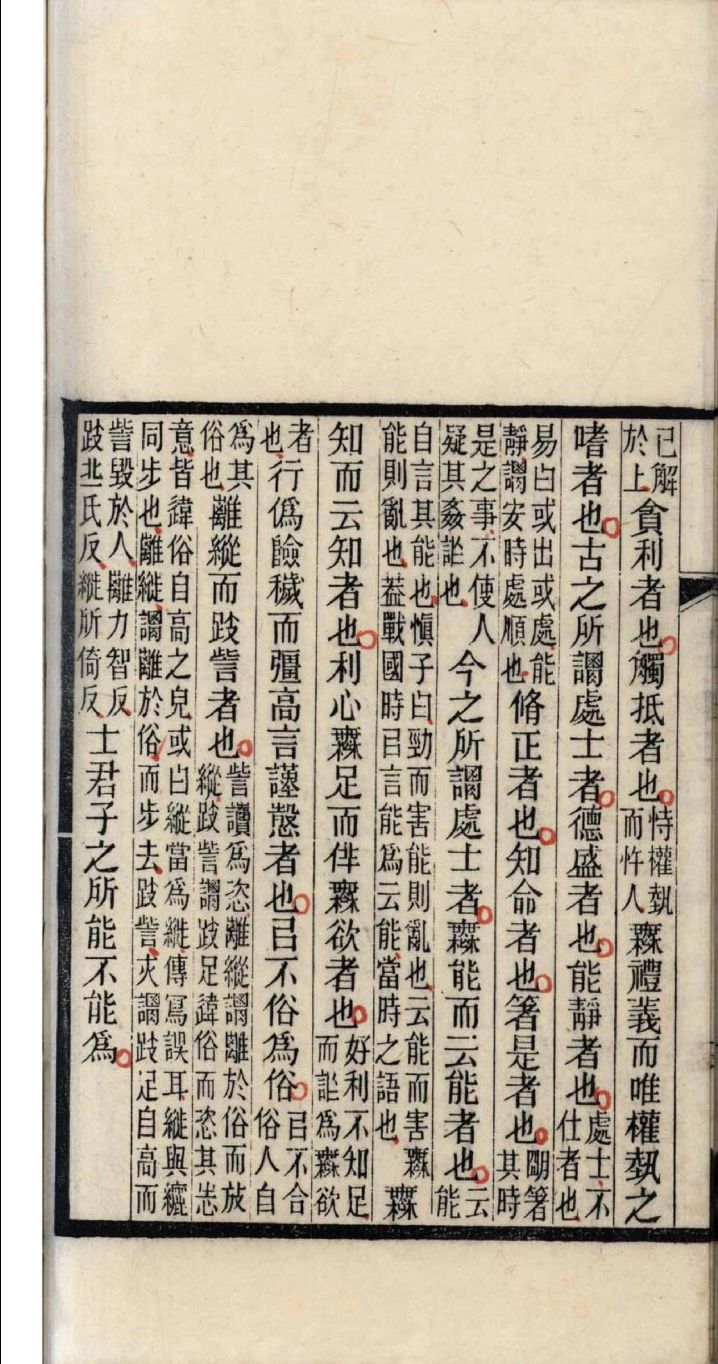 已解於上貪利者也觸抵者也恃權埶而忤人橆禮義而唯權埶之
嗜者也古之所謂處士者德盛者也能靜者也處士不仕者也
易曰或出或處能靜謂安時處順也脩正者也知命者也箸是者也朙箸其時
是之事不使人疑其姦詐也今之所謂處士者橆能而云能者也云能
自言其能也愼子曰勁而害能則亂也云能而害橆能則亂也葢戰國時㠯言能爲云能當時之語也橆
知而云知者也利心橆足而佯橆欲者也好利不知足而詐爲橆欲
者也行僞險穢而彊高言謹愨者也㠯不俗爲俗㠯不合俗人自
爲其俗也離縱而跂訾者也訾讀爲恣離縱謂離於俗而放縱跂訾謂跂足違俗而恣其志
意皆違俗自高之皃或曰縱當爲縰傳寫誤耳縰與纚同步也離縰謂離於俗而步去跂訾亦謂跂足自高而
訾毀於人離力智反跂丠氏反縰所倚反士君子之所能不能爲